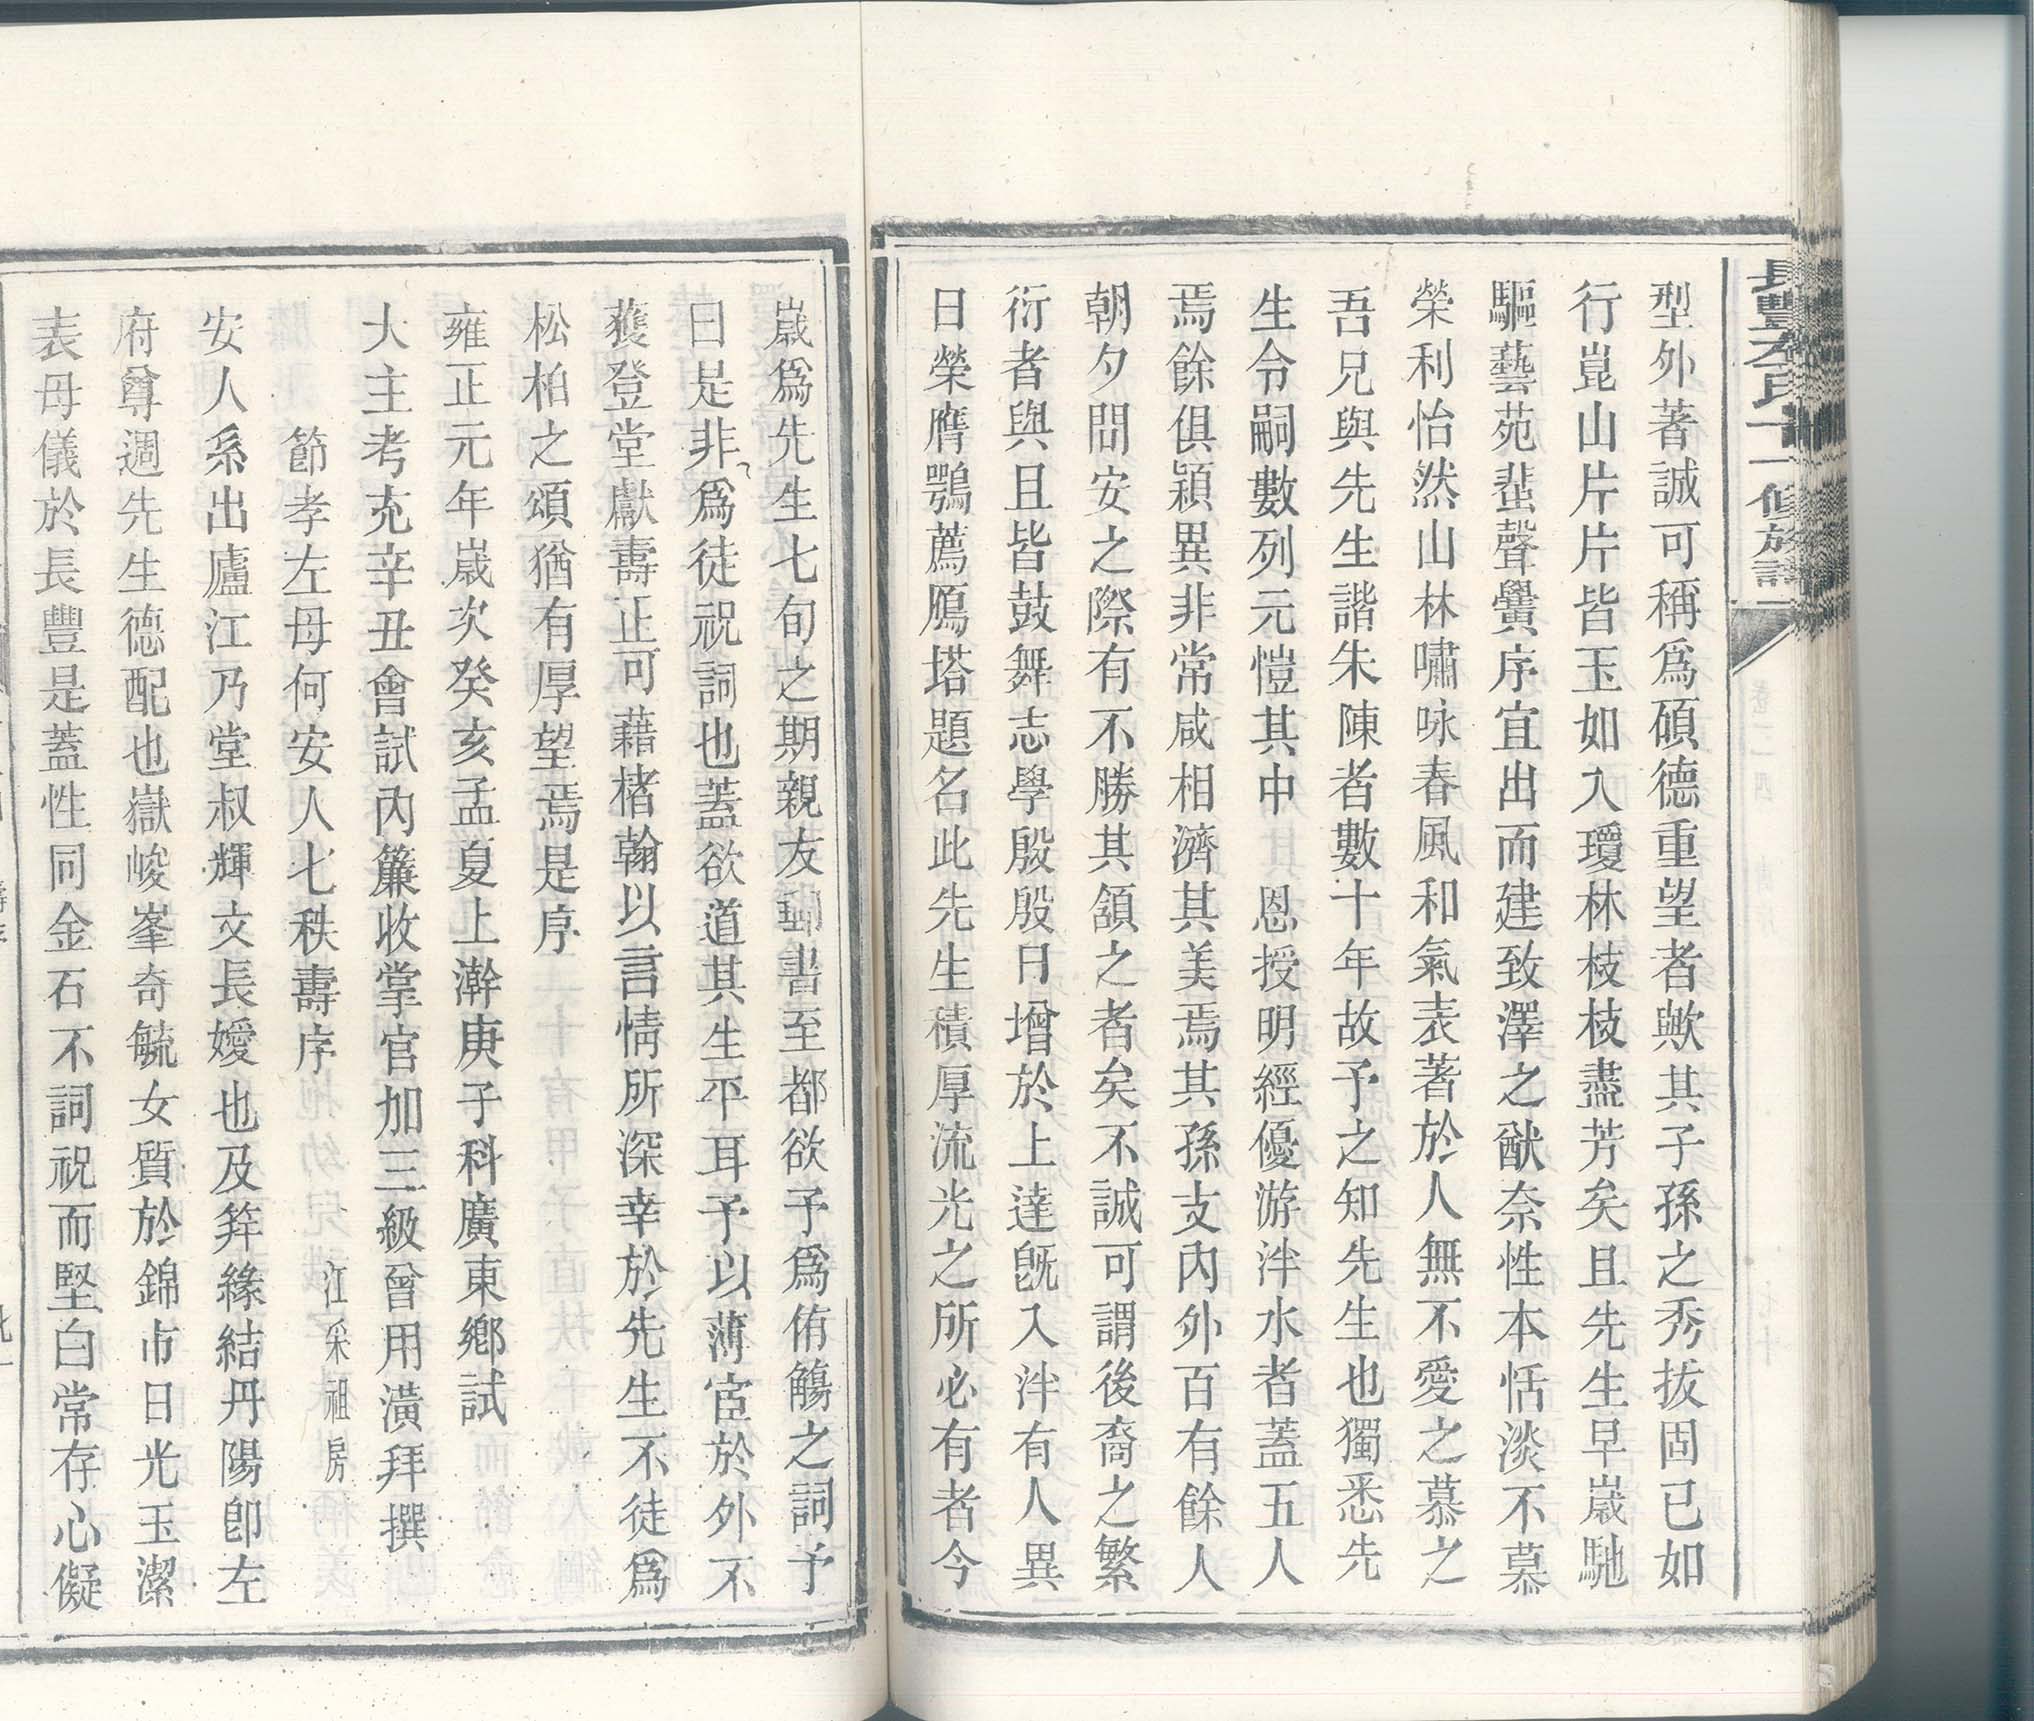 長豐左氏十一修族譜
型外著誠可稱爲碩德重望者歟其子孫之秀拔固已如
行崑山片片皆玉如入瓊林枝枝盡芳矣且先生早歲馳
驅藝苑蜚聲黌序宜出而建致澤之猷奈性本恬淡不慕
榮利怡然山林嘯咏春風和氣表著於人無不愛之慕之
吾兄與先生諧朱陳者數十年故予之知先生也獨悉先
生令嗣數列元愷其中　恩授明經優游泮水者蓋五人
焉餘俱穎異非常咸相濟其美焉其孫支內外百有餘人
朝夕問安之際有不勝其頷之者矣不誠可謂後裔之繁
衍者與且皆鼓舞志學殷殷日增於上達旣入泮有人異
日榮膺鶚薦鴈塔題名此先生積厚流光之所必有者今
歲爲先生七旬之期親友郵書至都欲予爲侑觴之詞予
曰是非爲徒祝詞也蓋欲道其生平耳予以薄宦於外不
獲登堂獻壽正可藉楮翰以言情所深幸於先生不徒爲
松柏之頌猶有厚望焉是序
雍正元年歲次癸亥孟夏上澣庚子科廣東鄉試
大主考充辛丑會試內簾收掌官加三級曾用潢拜撰
節孝左母何安人七秩壽序　江采祖房
安人系出廬江乃堂叔輝文長嬡也及笄緣結丹陽卽左
府尊週先生德配也嶽峻峯奇毓女質於錦市日光玉潔
表母儀於長豐是蓋性同金石不詞祝而堅白常存心儗